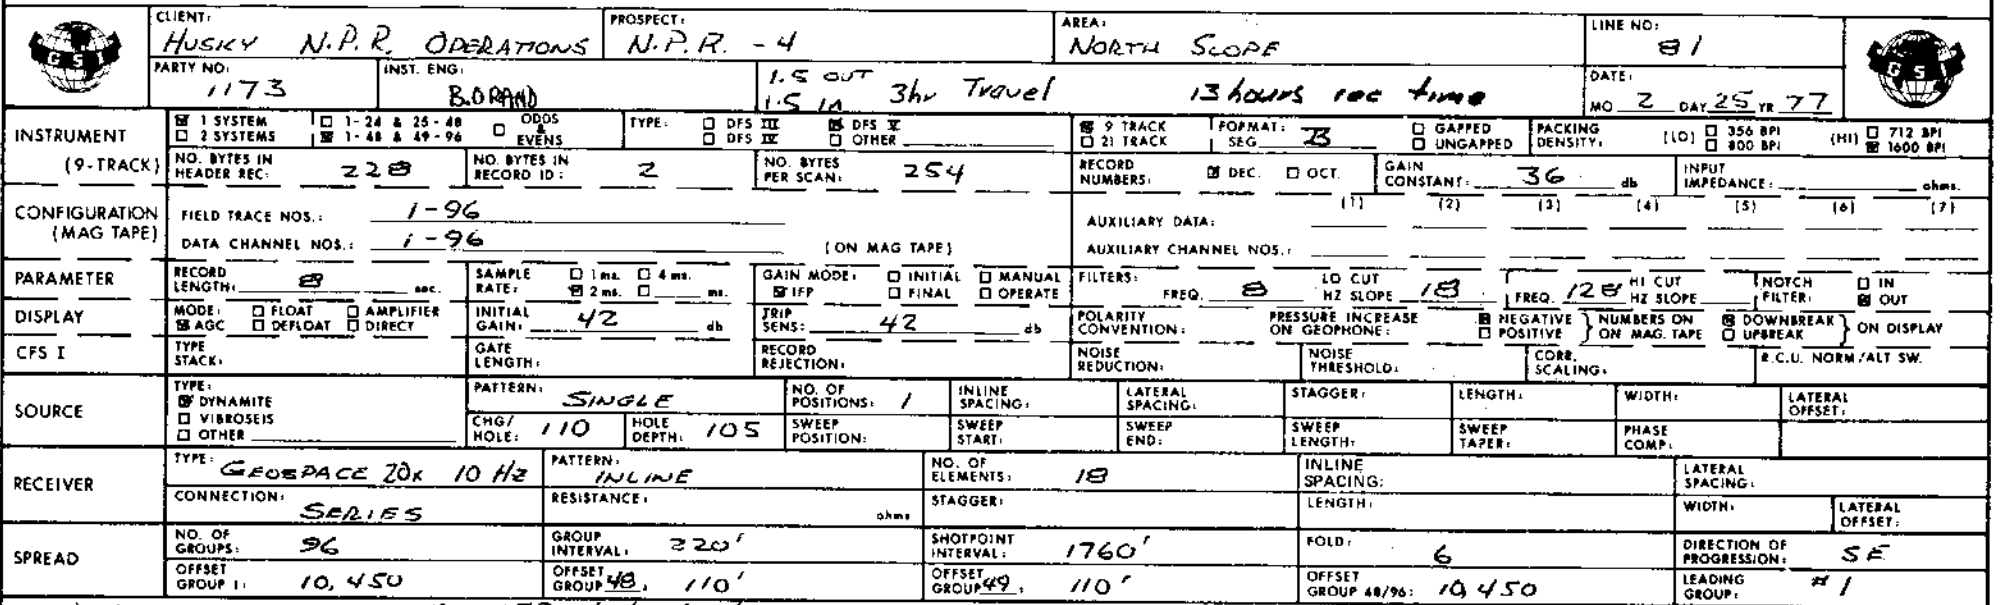 CLIENT: HUSKY N.P.R. OPERATIONS PROSPECT: N.P.R. - 4 AREA: NORTH SLOPE LINE NO: 81
GSI GSI
PARTY NO: 1173 INST. ENG: B.ORAND 1.5 OUT 1.5 IN 3hr Travel 13 hours rec time DATE: MO 2 DAY 25 YR 77
INSTRUMENT (9-TRACK) 1 SYSTEM 2 SYSTEMS 1-24 & 25-48 1-48 & 49-96 ODDS & EVENS TYPE: DFS III DFS IV DFS V OTHER 9 TRACK 21 TRACK FORMAT: SEG B GAPPED UNGAPPED PACKING DENSITY: (LO) 356 BPI 800 BPI (HI) 712 BPI 1600 BPI
NO. BYTES IN HEADER REC: 228 NO. BYTES IN RECORD ID: 2 NO. BYTES PER SCAN: 254 RECORD NUMBERS: DEC. OCT. GAIN CONSTANT: 36 db INPUT IMPEDANCE: ohms.
CONFIGURATION (MAG TAPE) FIELD TRACE NOS.: 1-96 AUXILIARY DATA: (1) (2) (3) (4) (5) (6) (7)
DATA CHANNEL NOS.: 1-96 (ON MAG TAPE) AUXILIARY CHANNEL NOS.:
PARAMETER RECORD LENGTH: 8 sec. SAMPLE RATE: 1 ms. 4 ms. 2 ms. ms. GAIN MODE: INITIAL MANUAL IFP FINAL OPERATE FILTERS: FREQ. 8 LO CUT HZ SLOPE 18 FREQ. 128 HI CUT HZ SLOPE NOTCH FILTER: IN OUT
DISPLAY MODE: FLOAT AMPLIFIER AGC DEFLOAT DIRECT INITIAL GAIN: 42 db TRIP SENS: 42 db POLARITY CONVENTION: PRESSURE INCREASE ON GEOPHONE: NEGATIVE POSITIVE NUMBERS ON ON MAG. TAPE DOWNBREAK UPBREAK ON DISPLAY
CFS I TYPE STACK: GATE LENGTH: RECORD REJECTION: NOISE REDUCTION: NOISE THRESHOLD: CORR. SCALING: R.C.U. NORM/ALT SW.
SOURCE TYPE: DYNAMITE VIBROSEIS OTHER PATTERN: SINGLE NO. OF POSITIONS: 1 INLINE SPACING: LATERAL SPACING: STAGGER: LENGTH: WIDTH: LATERAL OFFSET:
CHG/HOLE: 110 HOLE DEPTH: 105 SWEEP POSITION: SWEEP START: SWEEP END: SWEEP LENGTH: SWEEP TAPER: PHASE COMP:
RECEIVER TYPE: GEOSPACE 20x 10 Hz PATTERN: INLINE NO. OF ELEMENTS: 18 INLINE SPACING: LATERAL SPACING:
CONNECTION: SERIES RESISTANCE: ohms STAGGER: LENGTH: WIDTH: LATERAL OFFSET:
SPREAD NO. OF GROUPS: 96 GROUP INTERVAL: 220' SHOTPOINT INTERVAL: 1760' FOLD: 6 DIRECTION OF PROGRESSION: SE
OFFSET GROUP 1: 10,450 OFFSET GROUP 48: 110' OFFSET GROUP 49: 110' OFFSET GROUP 48/96: 10,450 LEADING GROUP: #1